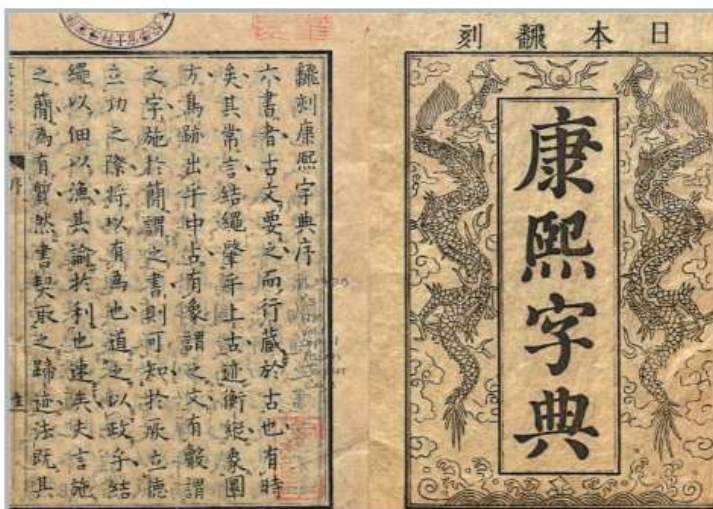 日本翻刻
康熙字典
翻刻康熙字典序
六書者古文要之而行藏於古也有時
矣其常言結繩肇乎上古迹衡縱象圓
方鳥跡出乎中古有象謂之文有聲謂
之字施於簡謂之書則可知於承立德
立功之際將以有為也道之以政乎結
繩以佃以漁其諭於利也速矣夫言施
之簡為有質然書契取之蹄迹法既其
序